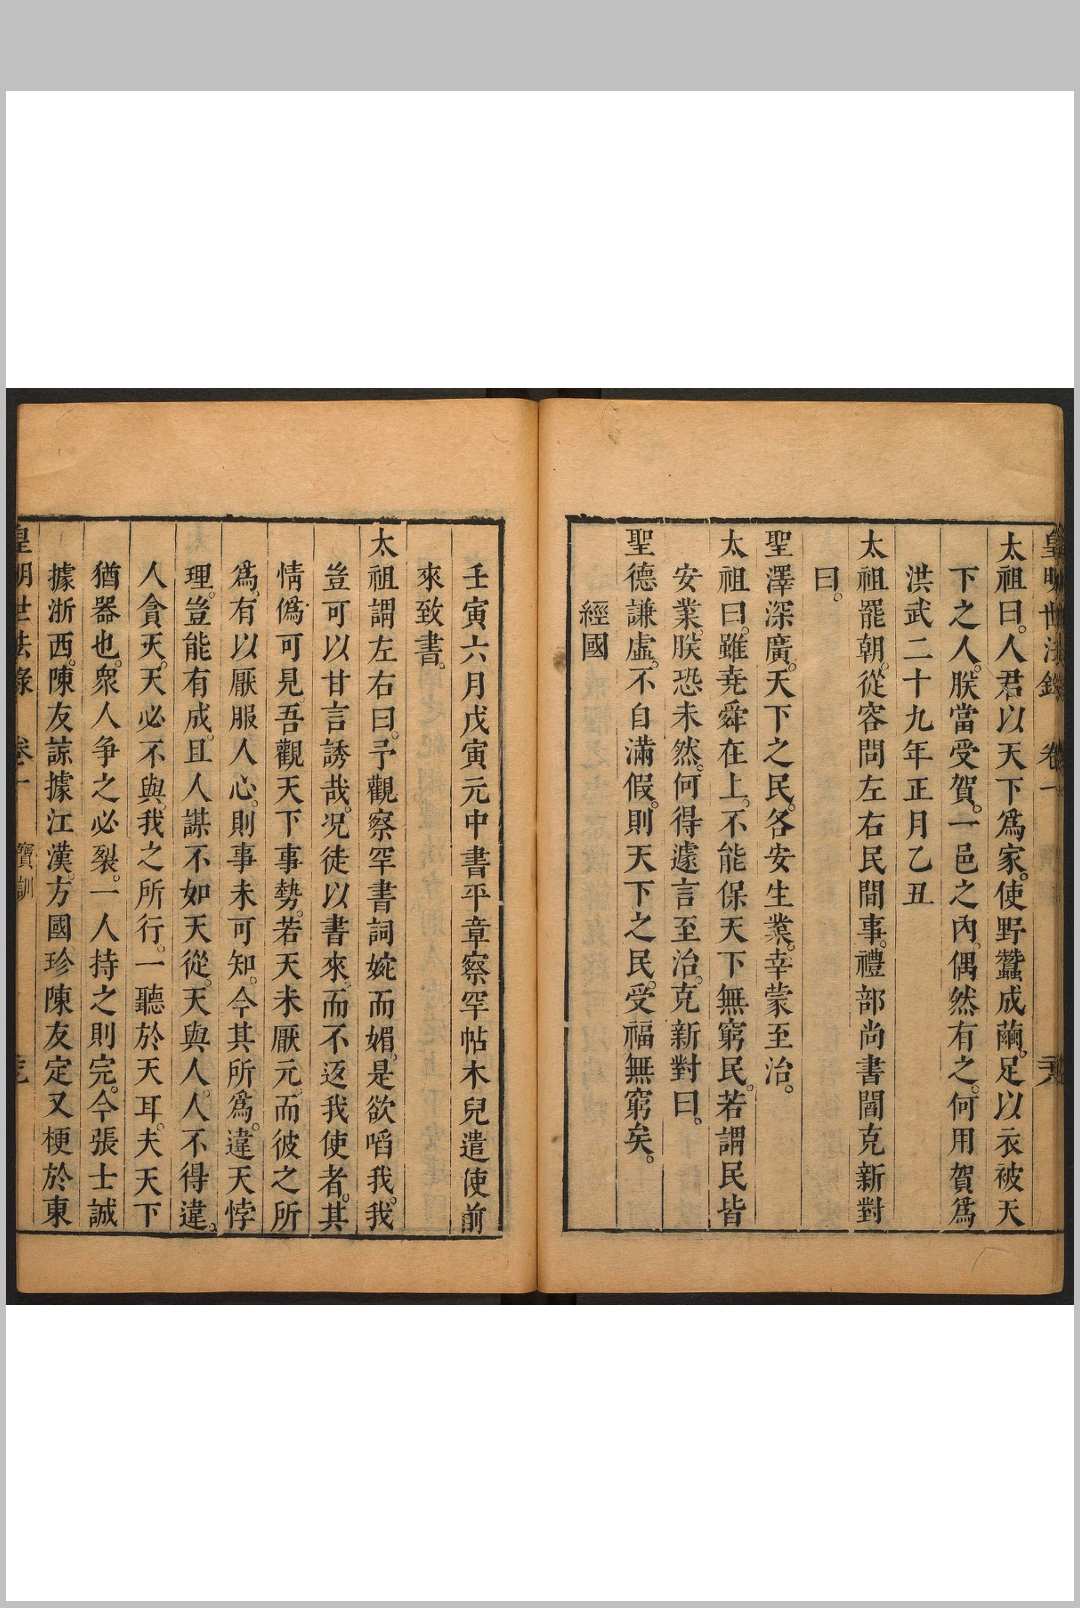 皇明世法錄 卷一
太祖曰。人君以天下爲家。使野蠶成繭。足以衣被天
下之人。朕當受賀。一邑之內。偶然有之。何用賀爲
洪武二十九年正月乙丑
太祖罷朝。從容問左右民間事。禮部尚書門克新對
曰。
聖澤深廣。天下之民。各安生業。幸蒙至治。
太祖曰。雖堯舜在上。不能保天下無窮民。若謂民皆
安業。朕恐未然。何得遽言至治。克新對曰。
聖德謙虛。不自滿假。則天下之民。受福無窮矣。
經國
壬寅六月戊寅元中書平章察罕帖木兒遣使前
來致書。
太祖謂左右曰。予觀察罕書詞婉而媚。是欲啗我。我
豈可以甘言誘哉。况徒以書來。而不返我使者。其
情僞可見吾觀天下事勢。若天未厭元。而彼之所
爲。有以厭服人心。則事未可知。今其所爲。違天悖
理。豈能有成。且人謀不如天從。天與人。人不得違。
人貪天。天必不與。我之所行。一聽於天耳。夫天下
猶器也。衆人争之必裂。一人持之則完。今張士誠
據浙西。陳友諒據江漢。方國珍陳友定又梗於東
皇明世法錄 卷一 寶訓